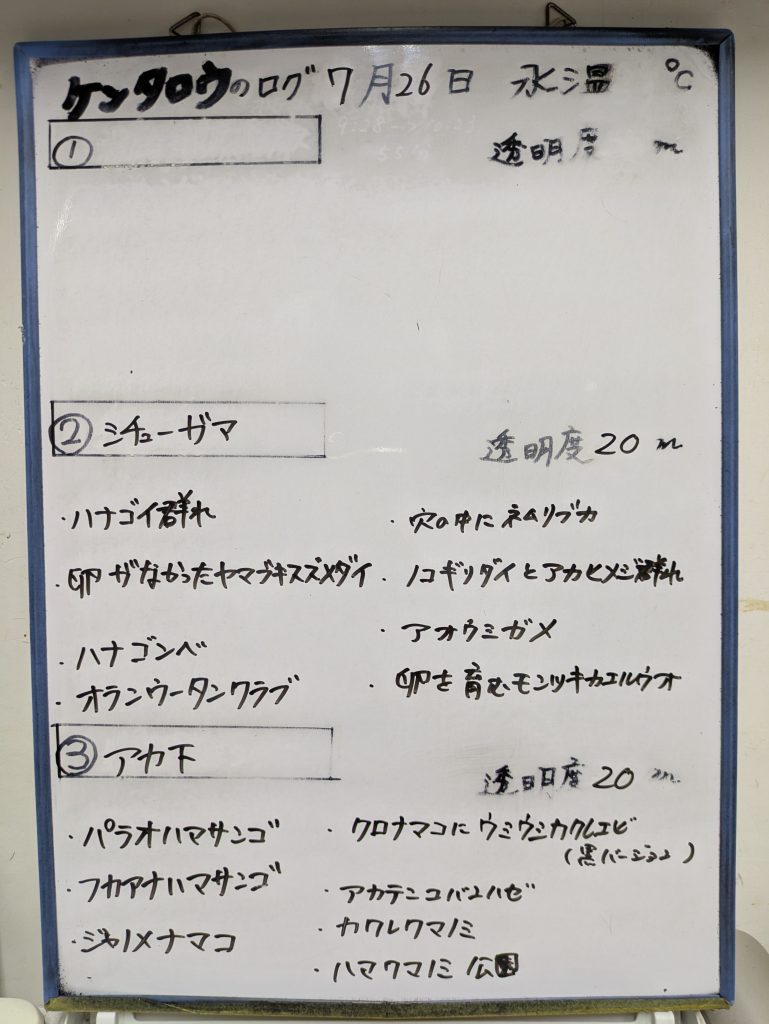 ケンタロウのログ 7月26日 水温 ℃
① 透明度 m
② シチューガマ 透明度 20 m
・ハナゴイ群れ
・卵がなかったヤマブキスズメダイ
・ハナゴンベ
・オランウータンクラブ
・穴の中にネムリブカ
・ノコギリダイとアカヒメジ群れ
・アオウミガメ
・卵を育むモンツキカエルウオ
③ アカ下 透明度 20 m
・パラオハマサンゴ
・フカアナハマサンゴ
・ジャノメナマコ
・クロナマコにウミウシカクレエビ
(黒バージョン)
・アカテンコバンハゼ
・カクレクマノミ
・ハマクマノミ公園